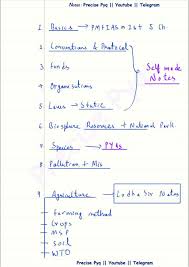 Notes: Precise Pyq || Youtube || Telegram
1. Basics → PMFIAS → 1st 5 Ch.
2. Conventions & Protocol
3. Funds
4. Organisations
Self made Notes
5. Laws → Static
6. Biosphere Reserves + National Park
7. Species → PYQs
8. Pollution + Mis
9. Agriculture → Lodha Sir Notes
- farming method
- Crops
- MSP
- Soil
- WTO
Precise Pyq || Youtube || Telegram